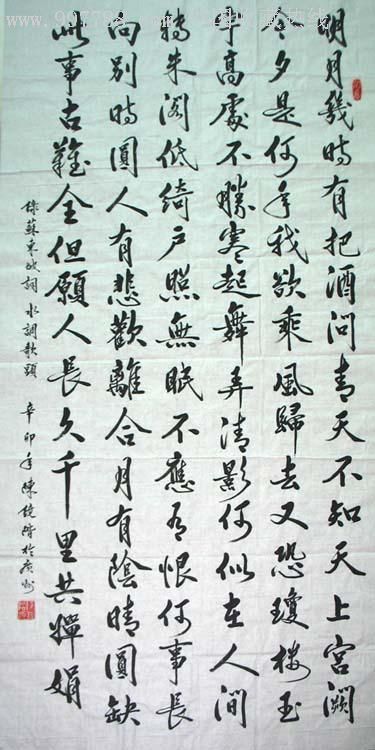 www.997788.com 中国收藏热线
明月幾時有把酒問青天不知天上宮闕
今夕是何年我欲乘風歸去又恐瓊樓玉
宇高處不勝寒起舞弄清影何似在人間
轉朱閣低綺戶照無眠不應有恨何事長
向別時圓人有悲歡離合月有陰晴圓缺
此事古難全但願人長久千里共嬋娟
錄蘇東坡詞 水調歌頭 辛卯年陳 於廣州